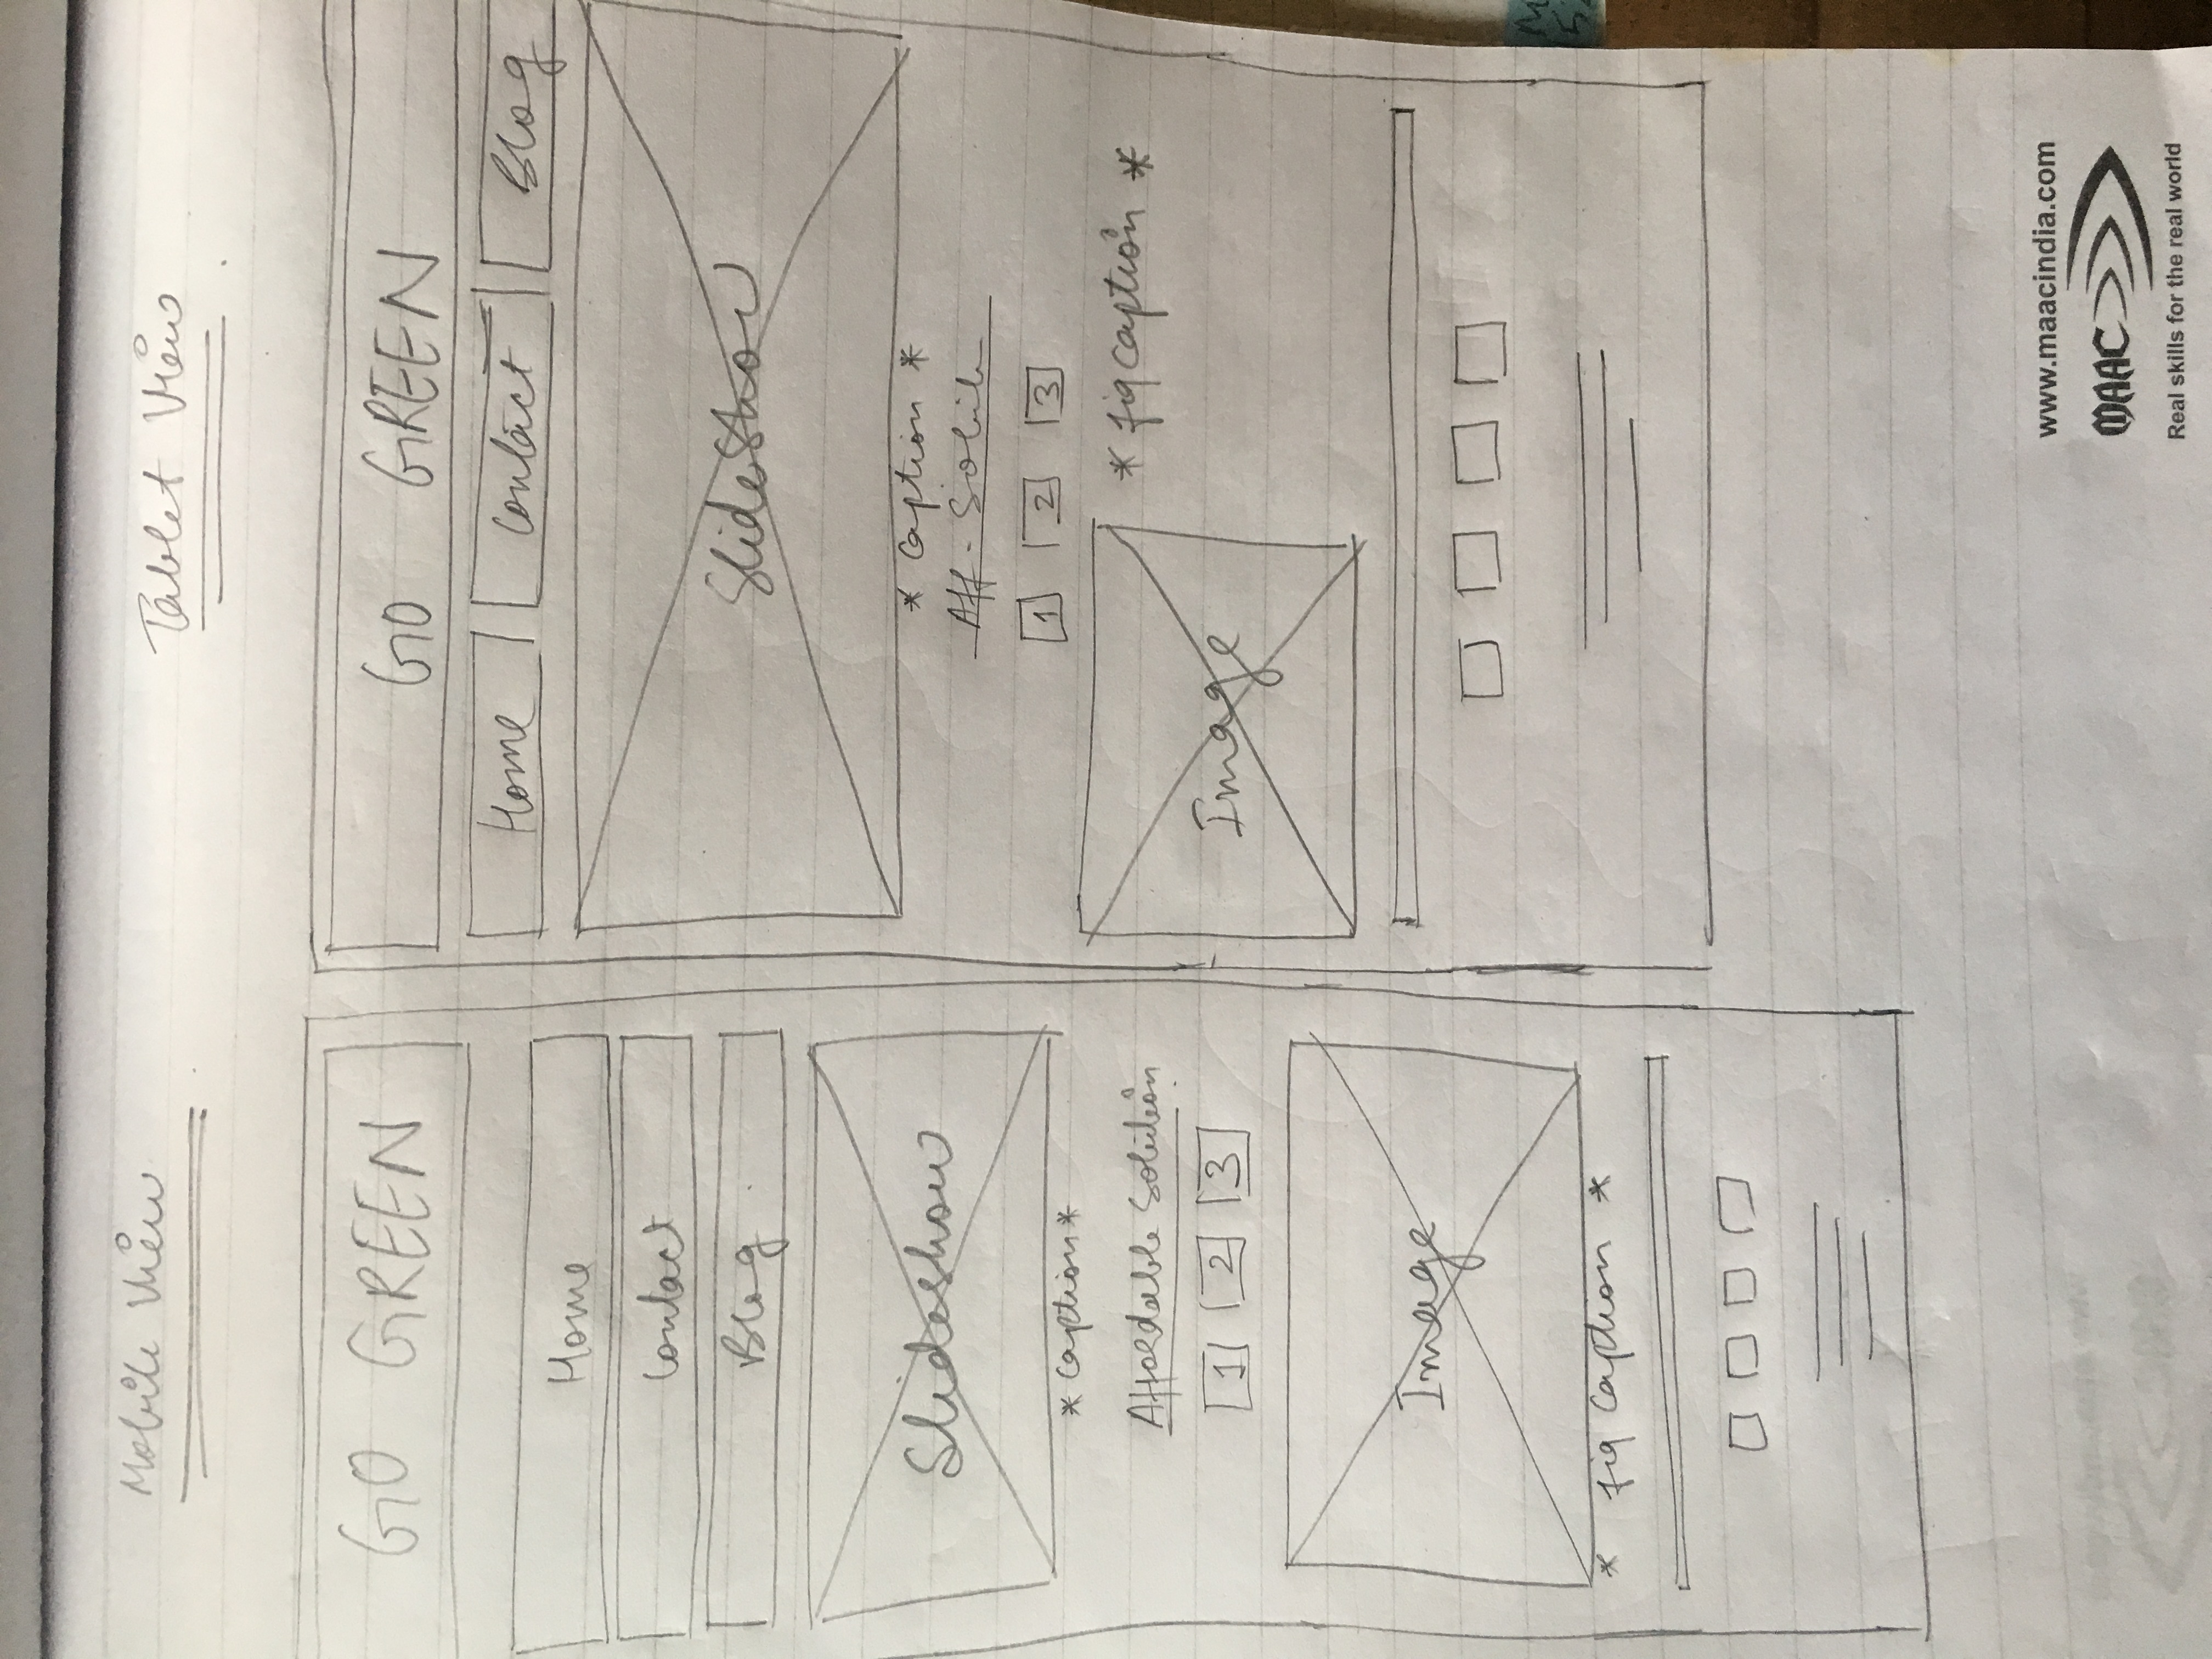 Mobile View
Tablet View
GO GREEN
Home
Contact
Blog
Slideshow
* Caption *
Affordable Solution
1 2 3
Image
* fig caption *
GO GREEN
Home Contact Blog
SlideShow
* Caption *
Aff-
1 2 3
Image
* figcaption *
www.maacindia.com
MAAC
Real skills for the real world